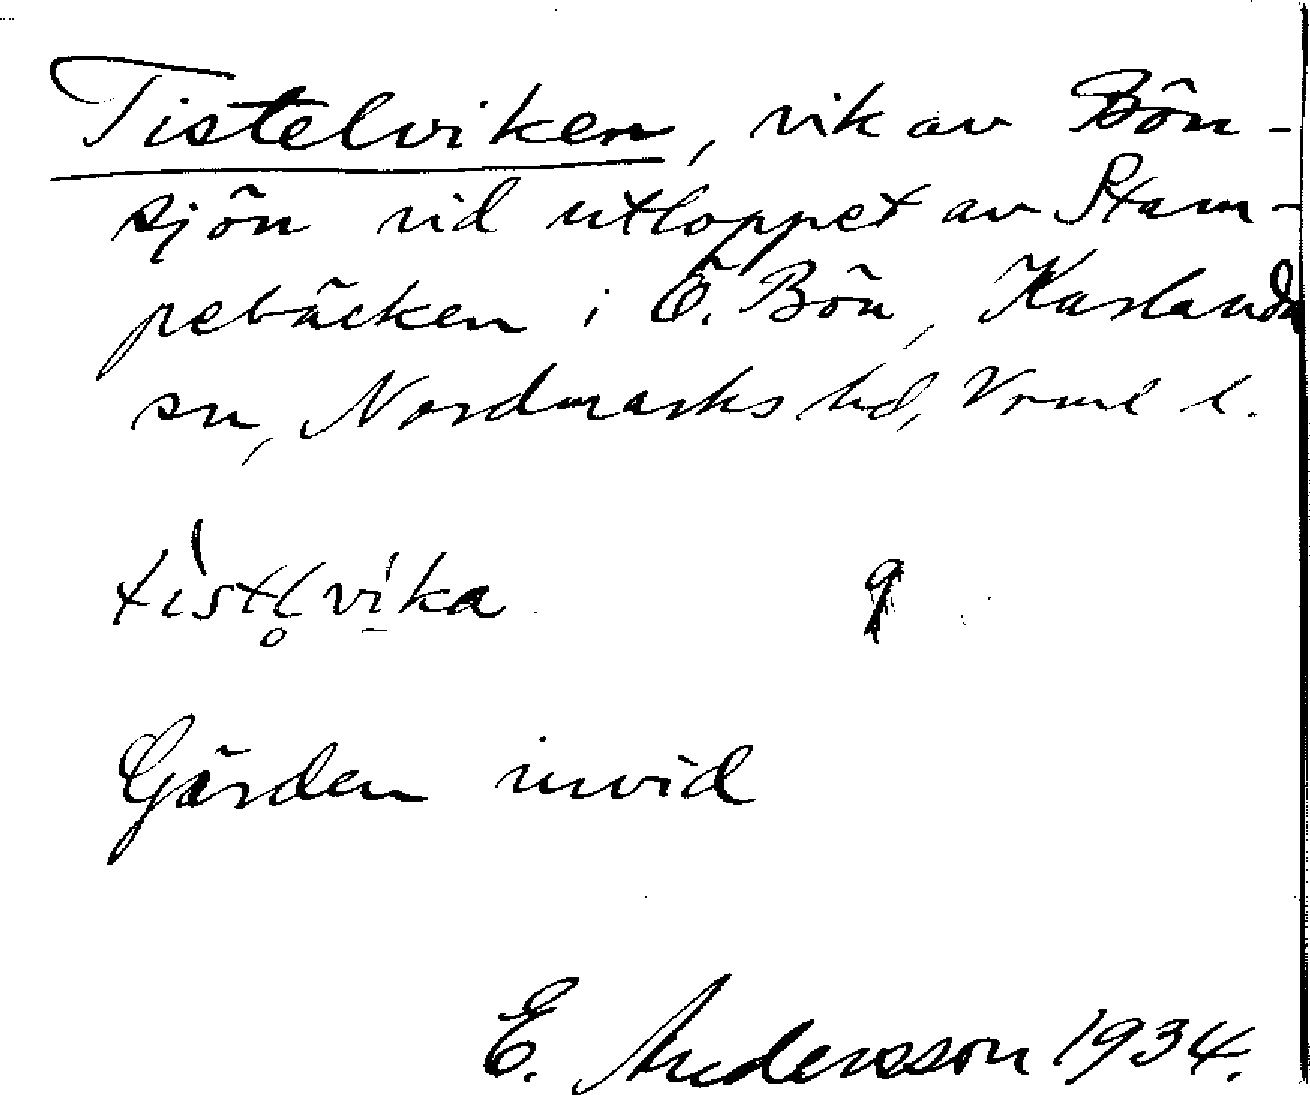 Tistelviken, vik av Bön-
sjön vid utloppet av Stam-
pebäcken i Ö. Bön, Karlanda
sn, Nordmarks hd, Vrml l.
tìstl̥vi̱ka
Gården invid
E. Andersson 1934.